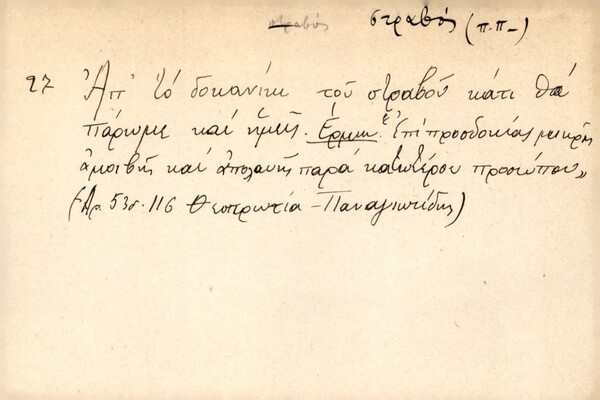 στραβός στραβός (π.π-)
27 Ἀπ' τό δοκανίκι τοῦ στραβοῦ κάτι θά
πάρωμε καί ἡμεῖς. Ἑρμην. "Ἐπί προσδοκίας μικρῆς
ἀμοιβῆς καί ἀπολαυῆς παρά κατωτέρου προσώπου"
(Αρ. 53σ. 116 Θεσπρωτία - Παναγιωτίδης)